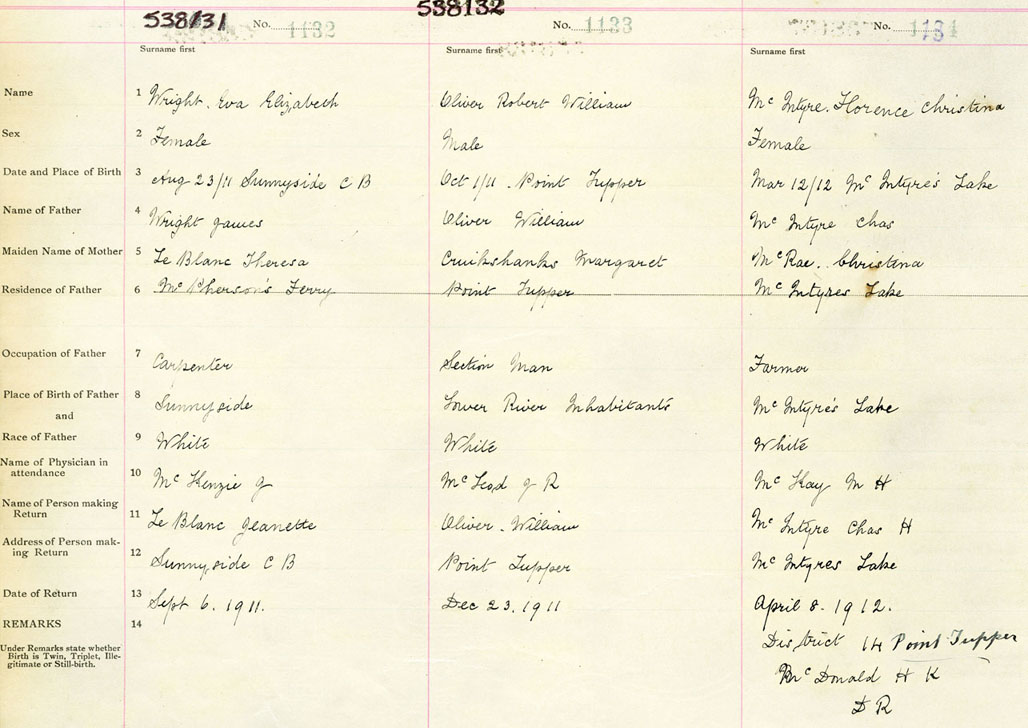 538131 No. 1132 538132 No. 1133 No. 1134
Surname first Surname first Surname first
Name 1 Wright. Eva Elizabeth Oliver Robert William Mc Intyre. Florence Christina
Sex 2 Female Male Female
Date and Place of Birth 3 Aug 23/11 Sunnyside C B Oct 1/11 . Point Tupper Mar 12/12 Mc Intyre's Lake
Name of Father 4 Wright James Oliver William Mc Intyre Chas
Maiden Name of Mother 5 Le Blanc Theresa Cruikshanks Margaret Mc Rae.. Christina
Residence of Father 6 Mc Pherson's Ferry Point Tupper Mc Intyres Lake
Occupation of Father 7 Carpenter Section Man Farmer
Place of Birth of Father 8 Sunnyside Lower River Inhabitants Mc Intyre's Lake
and
Race of Father 9 White White White
Name of Physician in
attendance 10 Mc Kenzie J Mc Leod J R Mc Kay M H
Name of Person making
Return 11 Le Blanc Jeanette Oliver . William Mc Intyre Chas H
Address of Person mak-
ing Return 12 Sunnyside C B Point Tupper Mc Intyres Lake
Date of Return 13 Sept 6. 1911. Dec 23. 1911 April 8. 1912.
REMARKS 14
Under Remarks state whether
Birth is Twin, Triplet, Ille-
gitimate or Still-birth.
District 14 Point Tupper
Mc Donald H K
D R